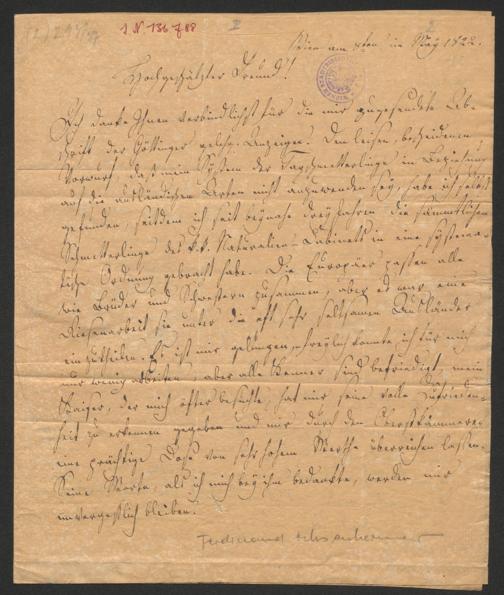 I.N. 136.788
Wien am 8ten im May 1822.
Hochgeschätzter Freund!
Ich danke Ihnen verbindlichst für die mir zugesendete Ab-
schrift der Göttinger gelehr. Anzeigen. Den leisen, bescheidenen
Vorwurf, daß mein System der Tagschmetterlinge in Beziehung
auf die ausländischen Arten nicht anzuwenden sey, habe ich selbst
gefunden, seitdem ich seit beynahe drey Jahren die sämmtlichen
Schmetterlinge des k.k. Naturalien-Cabinetts in eine systema-
tische Ordnung gebracht habe. Die Europäer passen alle
wie Brüder und Schwestern zusammen, aber es war eine
Riesenarbeit sie unter die oft sehr seltsamen Ausländer
einzutheilen. Es ist mir gelungen, freylich konnte ich für mich
nur wenig arbeiten, aber alle Kenner sind befriedigt, mein
Kaiser, der mich öfter besuchte, hat mir seine volle Zufrieden-
heit zu erkennen gegeben und mir durch den Oberstkämmerer
eine prächtige Dose von sehr hohem Werthe überreichen lassen.
Seine Worte, als ich mich bey ihm bedankte, werden mir
unvergeßlich bleiben.
Ferdinand Ochsenheimer